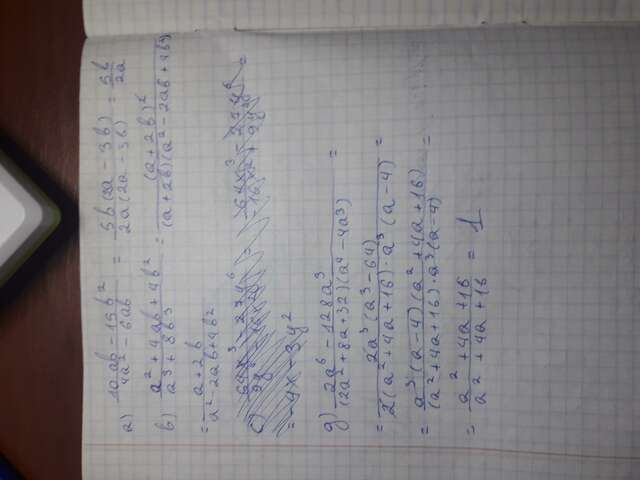 a) (10ab - 15b²)/(4a² - 6ab) = (5b(2a - 3b))/(2a(2a - 3b)) = 5b/2a
b) (a² + 4ab + 4b²)/(a³ + 8b³) = (a + 2b)²/((a + 2b)(a² - 2ab + 4b²))
= (a + 2b)/(a² - 2ab + 4b²)
c)
= -4x - 3y²
g) (2a⁶ - 128a³)/((2a² + 8a + 32)(a⁴ - 4a³)) =
= (2a³(a³ - 64))/(2(a² + 4a + 16)·a³(a - 4)) =
= (a³(a - 4)(a² + 4a + 16))/((a² + 4a + 16)·a³(a - 4)) =
= (a² + 4a + 16)/(a² + 4a + 16) = 1